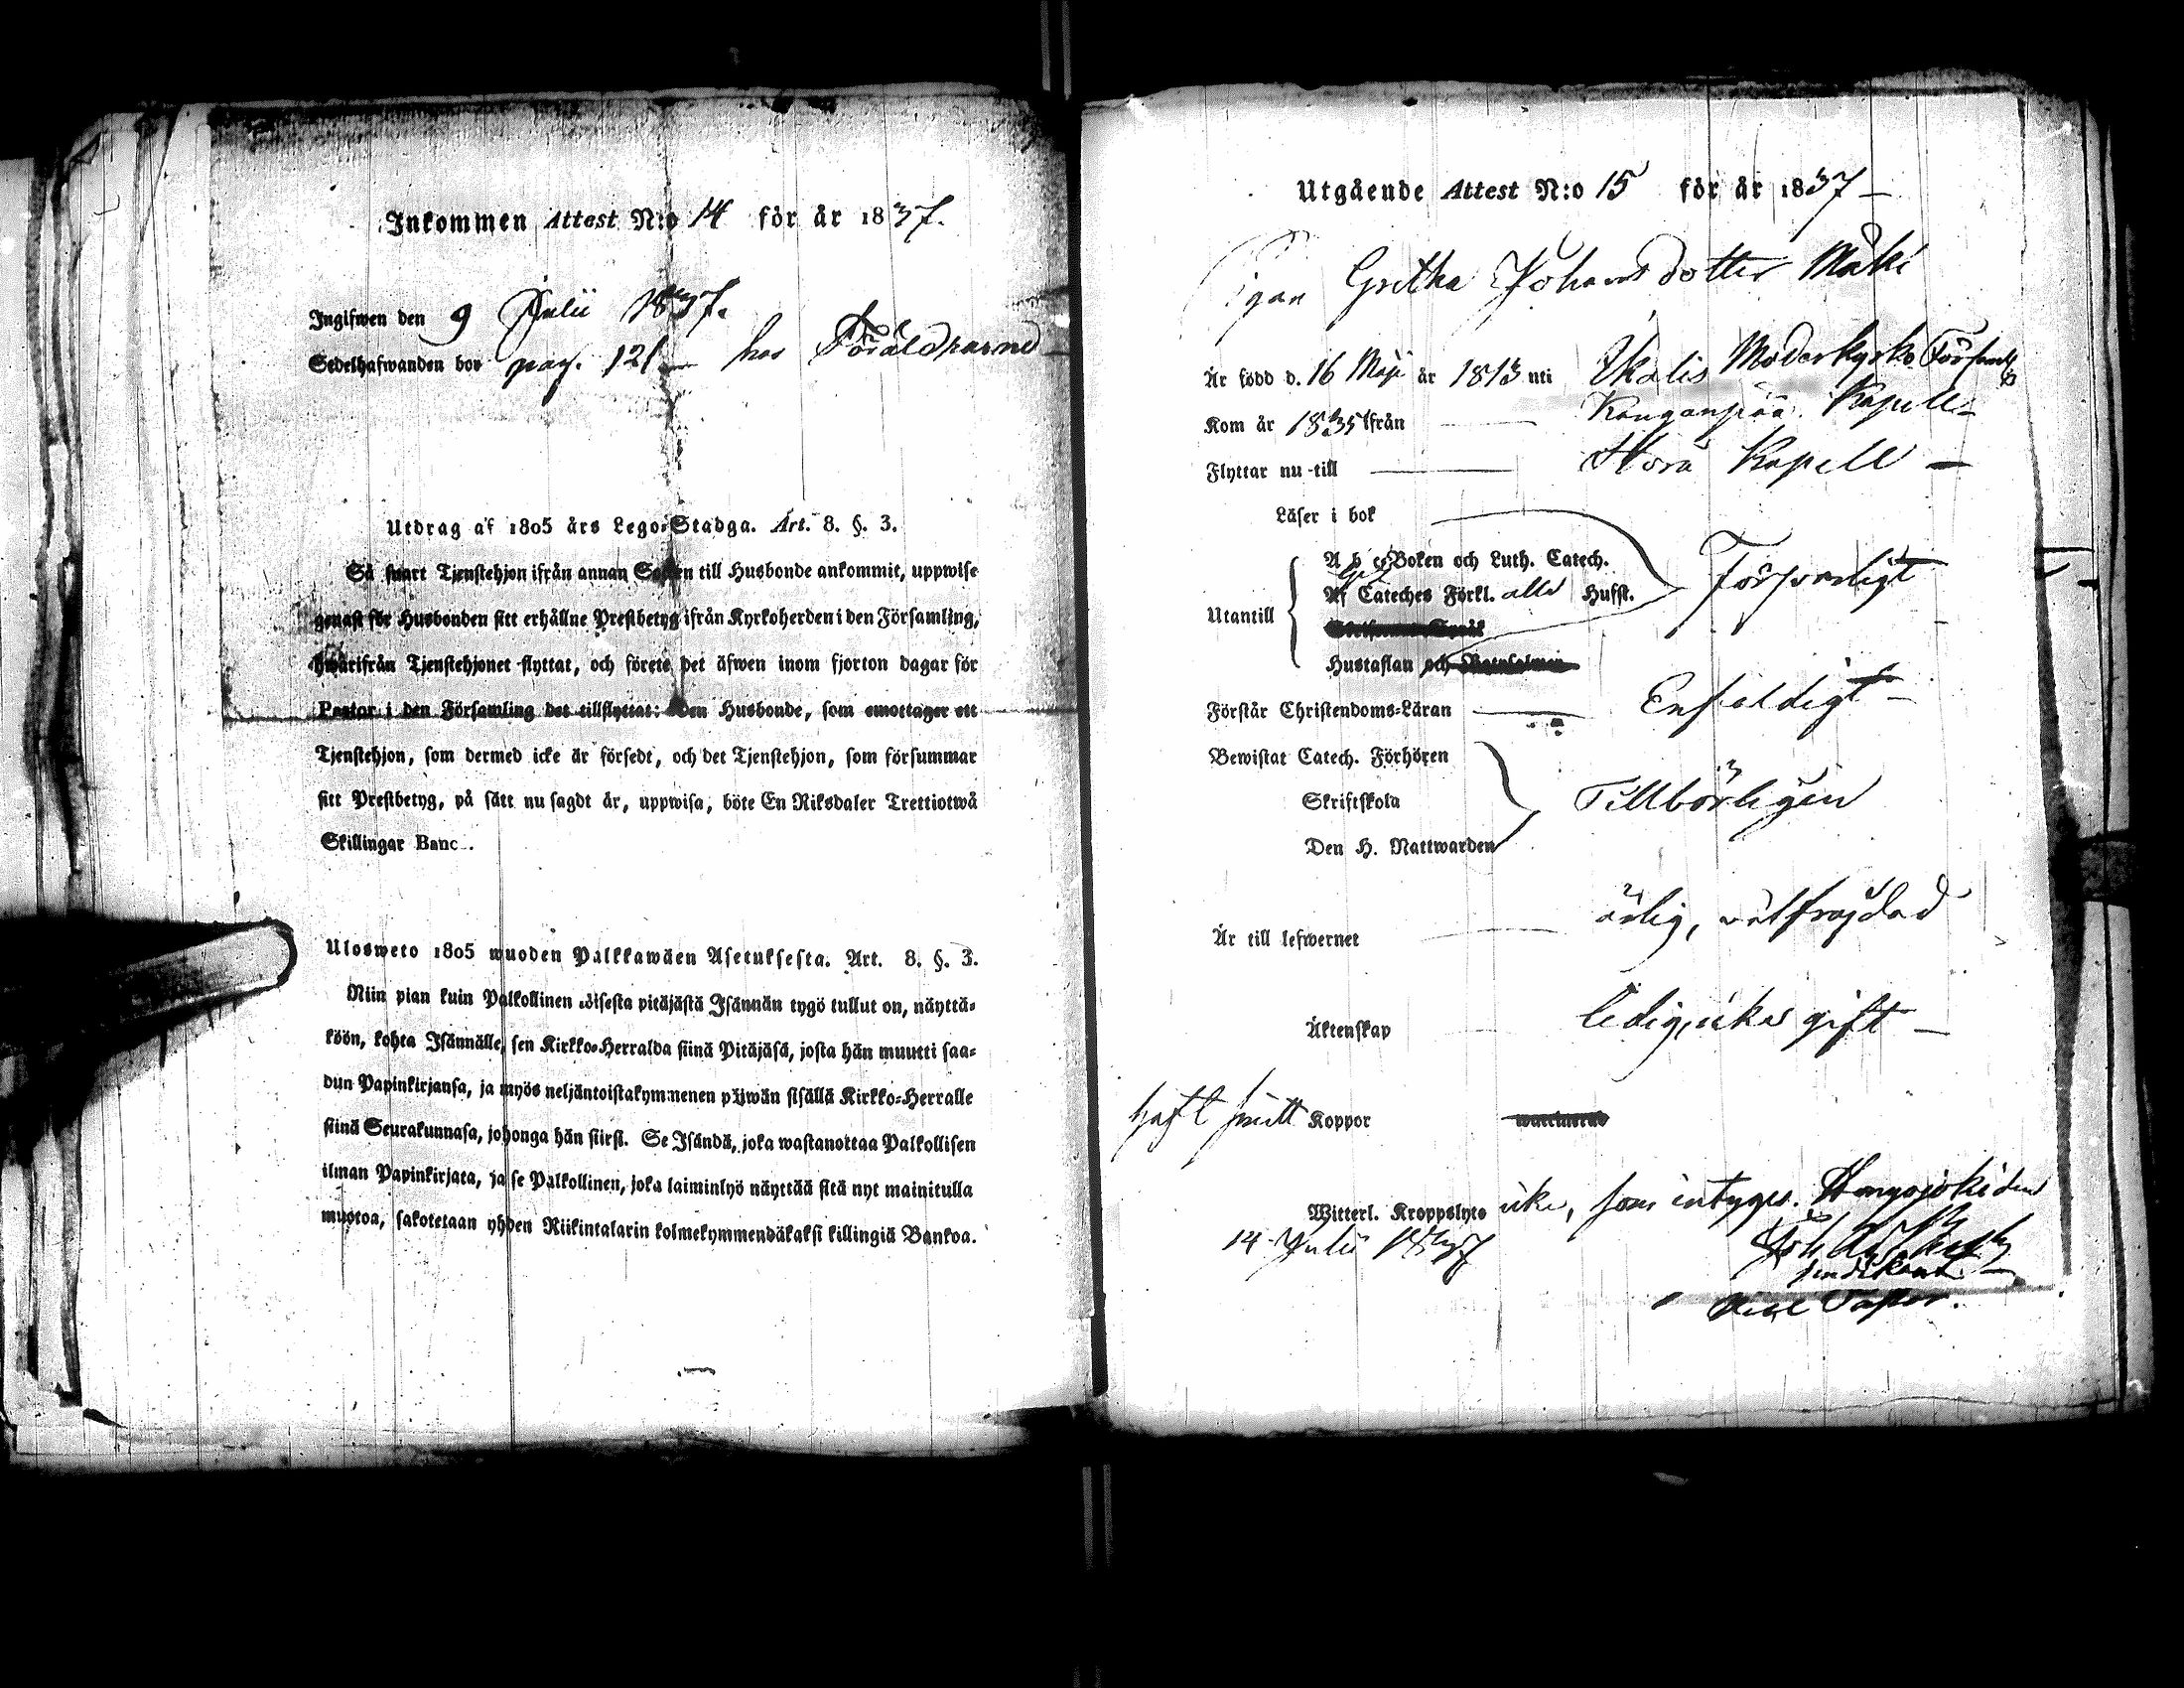 Inkommen Attest N:o 14 för år 1837.
Ingifwen den 9 Julii 1837.
Sedelhafwanden bor pag. 121 hos Föräldrarne
Utdrag af 1805 års Lego-Stadga. Art. 8. §. 3.
Så snart Tjenstehjon ifrån annan Socken till Husbonde ankommit, uppwise
genast för Husbonden sitt erhållne Prestbetyg ifrån Kyrkoherden i den Församling,
hwarifrån Tjenstehjonet flyttat, och förete det äfwen inom fjorton dagar för
Pastor i den Församling det tillflyttat: Den Husbonde, som emottager ett
Tjenstehjon, som dermed icke är försedt, och det Tjenstehjon, som försummar
sitt Prestbetyg, på sätt nu sagdt är, uppwisa, böte En Riksdaler Trettiotwå
Skillingar Banc..
Ulosweto 1805 wuoden Palkkawäen Asetuksesta. Art. 8. §. 3.
Niin pian kuin Palkollinen toisesta pitäjästä Isännän tygö tullut on, näyttä-
köön, kohta Isännälle, sen Kirkko-Herralda siinä Pitäjäsä, josta hän muutti saa-
dun Papinkirjansa, ja myös neljäntoistakymmenen päiwän sisällä Kirkko-Herralle
siinä Seurakunnasa, johonga hän siirsi. Se Isändä, joka wastanottaa Palkollisen
ilman Papinkirjata, ja se Palkollinen, joka laiminlyö näyttää sitä nyt mainitulla
muotoa, sakotetaan yhden Riikintalarin kolmekymmendäkaksi killingiä Bankoa.
Utgående Attest N:o 15 för år 1837
Pigan Gretha Johansdotter Mäki
Är född d. 16 Maji år 1813 uti Ikalis Moderkyrko Församl
Kom år 1835 ifrån Kanganpää Kapell
Flyttar nu till Kapell
Läser i bok
A b c-Boken och Luth. Catech.
Utantill Af Cateches Förkl. alla Hufst. Försvarligt
Hustaflan och
Förstår Christendoms-Läran Enfaldigt
Bewistat Catech. Förhören
Skriftskola Tillbörligen
Den H. Nattwarden
Är till lefwernet ärlig, välfrejdad
Äktenskap ledig, icke gift
haft Koppor
Witterl. Kroppslyte icke, som intygas. Hongojoki den
14 Julii 1837 Joh
Vice Pastor.